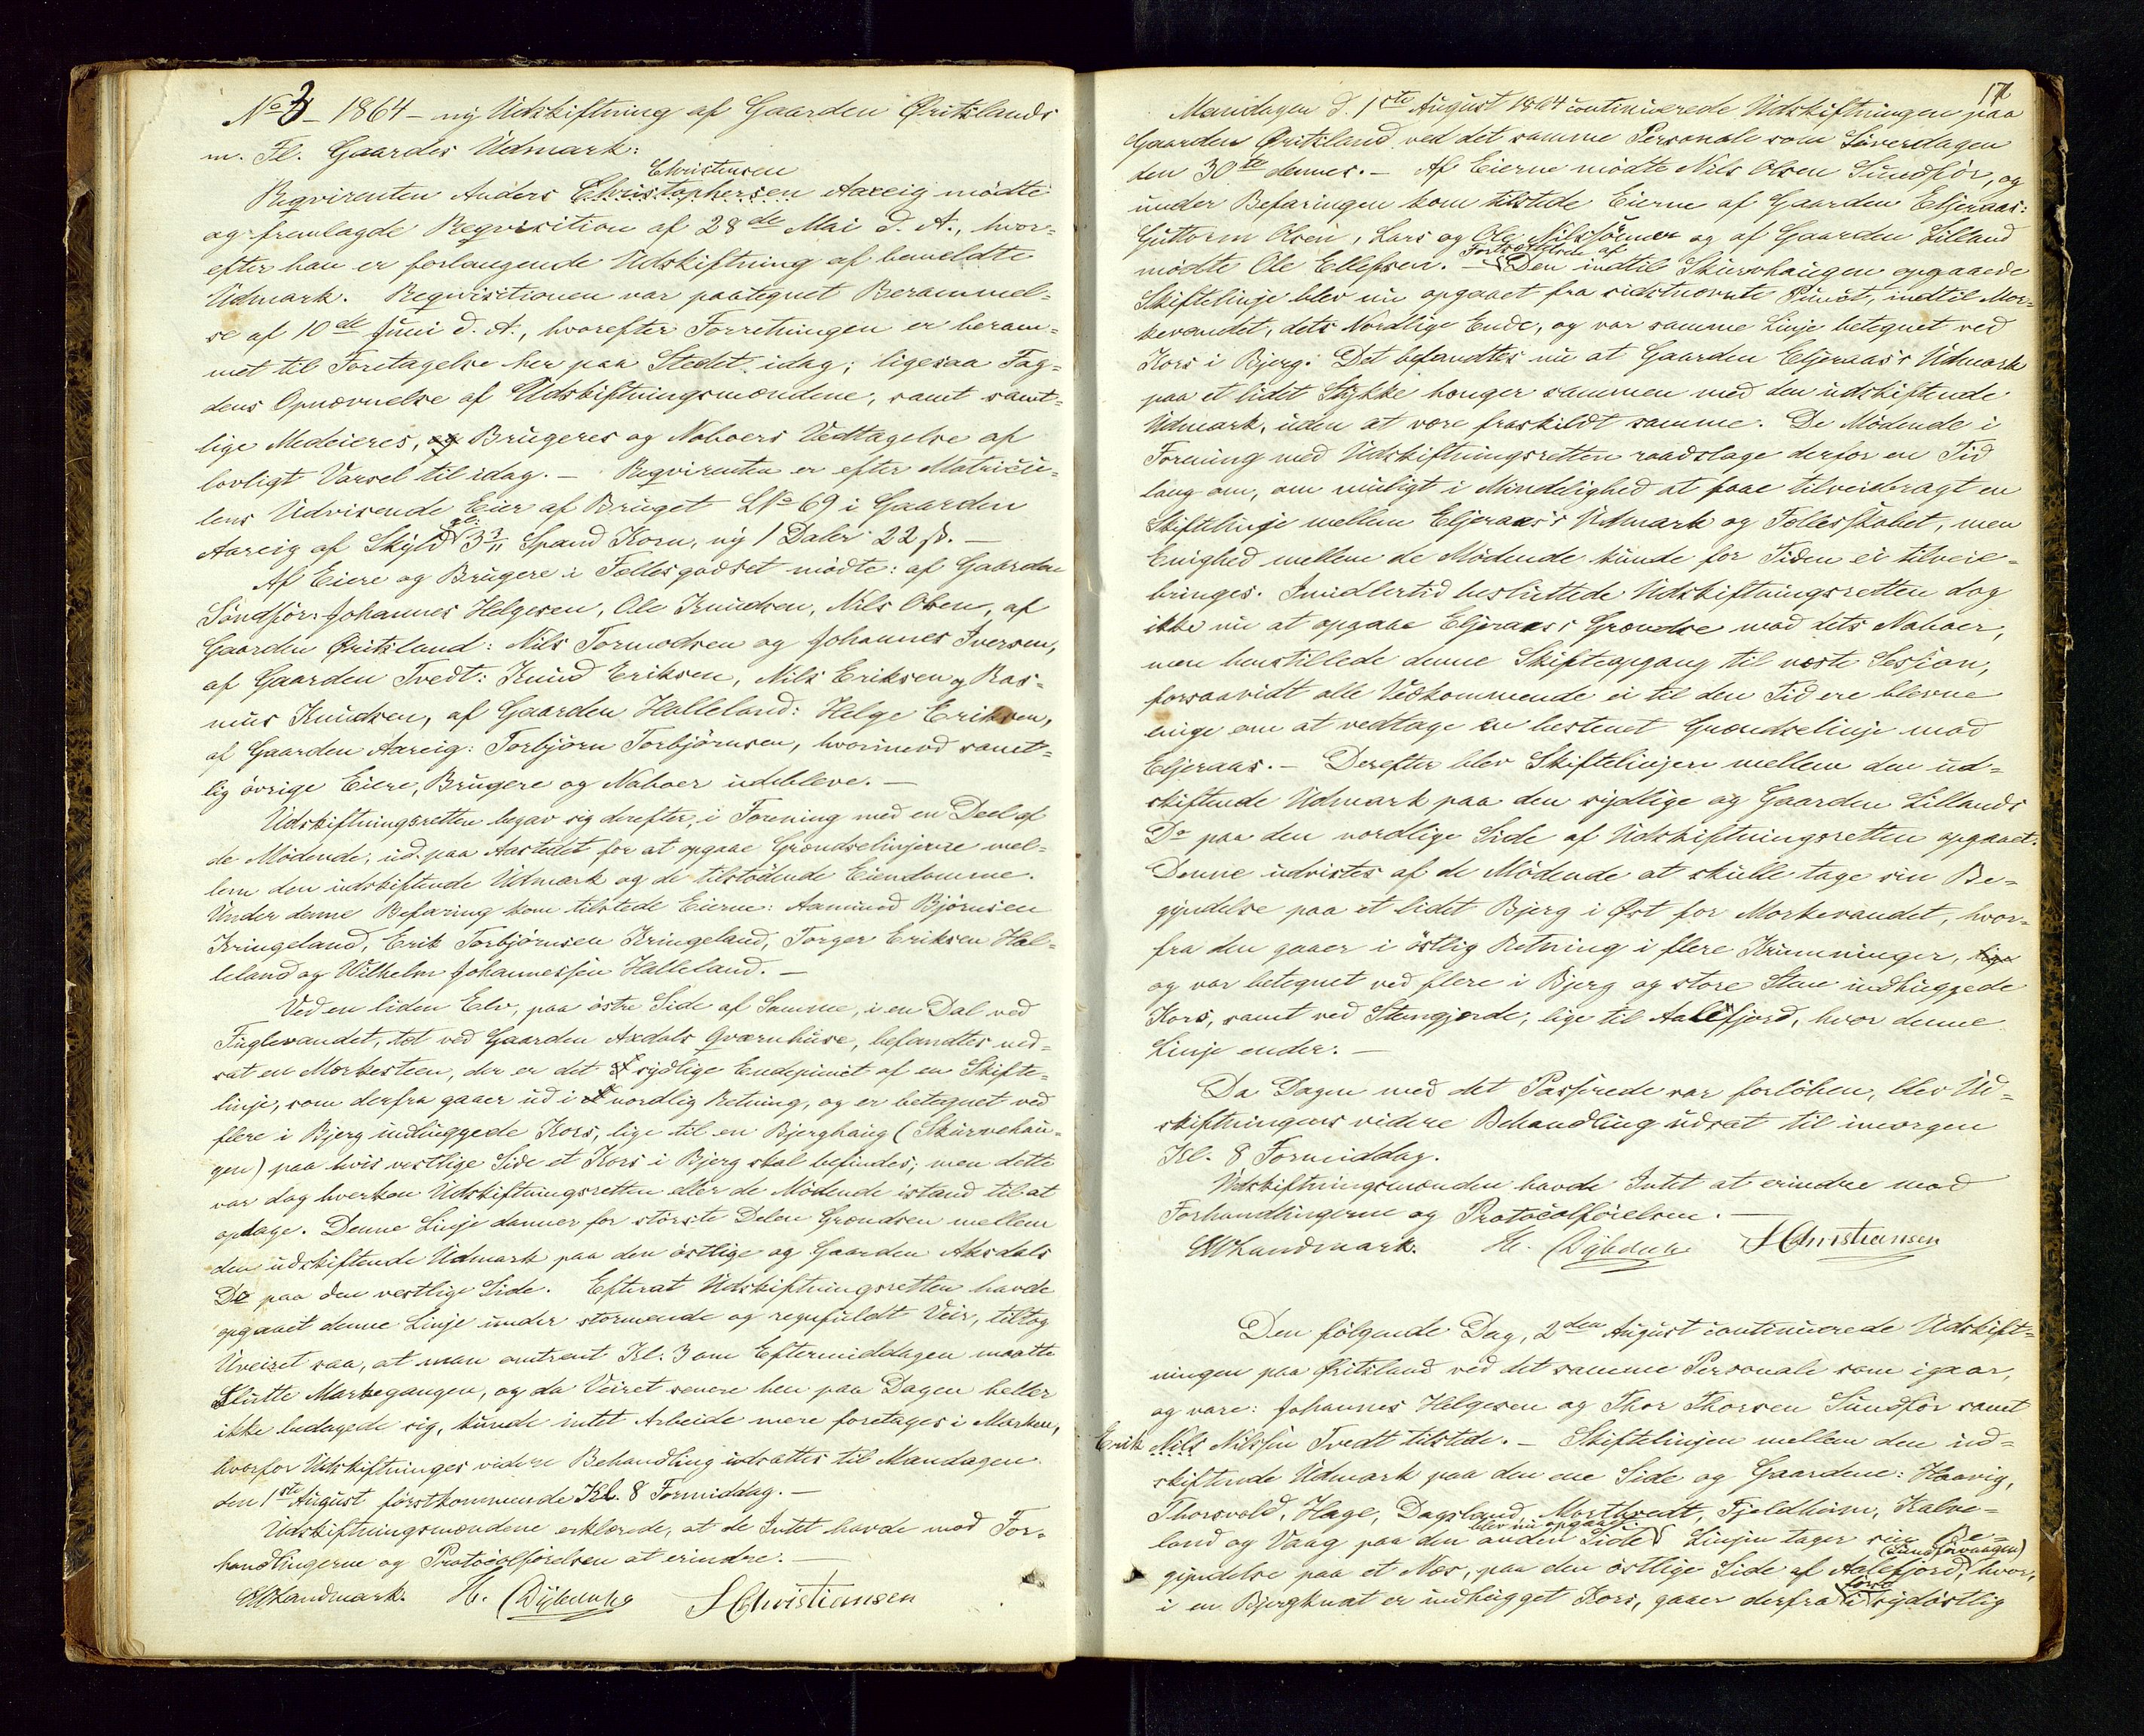 No 3 - 1864 - ny Udskiftning af Gaarden Øritslands
m. Fl. Gaardes Udmark:
Christensen
Reqvirenten Anders Christophersen Aareig mødte
og fremlagde Reqvisition af 28de Mai d. A., hvor-
efter han er forlangende Udskiftning af bemeldte
Udmark. Reqvisitionen var paategnet Berammel-
se af 10de Juni d. A., hvorefter Forretningen er beram-
met til Foretagelse her paa Stedet idag; ligesaa Fog-
dens Opnævnelse af Udskiftningsmændene, samt samt-
lige Medeieres, og Brugeres og Naboers Vedtagelse af
lovligt Varsel til idag. - Reqvirenten er efter Matricu-
lens Udvisende Eier af Bruget LNo 69 i Gaarden
gl:
Aareig af Skyld 3 3/11 Spand Korn, ny 1 Daler 22 ß. -
Af Eiere og Brugere i Fællesgodset mødte: af Gaarden
Söndför: Johannes Helgesen, Ole Knudsen, Nils Olsen, af
Gaarden Øritsland: Nils Tormodsen og Johannes Iversen,
af Gaarden Tvedt: Knud Eriksen, Nils Eriksen og Ras-
mus Knudsen, af Gaarden Halleland: Helge Eriksen,
af Gaarden Aareig: Torbjörn Torbjörnsen, hvorimod samt-
lig övrige Eiere, Brugere og Naboer udebleve. -
Udskiftningsretten begav sig derefter, i Forening med en Deel af
de Mödende, ud paa Aastedet for at opgaae Grændselinjerne mel-
lem den udskiftende Udmark og de tilstödende Eiendomme.
Under denne Befaring kom tilstede Eierne: Aamund Björnsen
Kringeland, Erik Torbjörnsen Kringeland, Torger Eriksen Hal-
leland og Wilhelm Johannessen Halleland. -
Ved en liden Elv, paa östre Side af Samme, i en Dal ved
Fuglevandet, tæt ved Gaarden Axdals Qværnhuse, befandtes ned-
sat en Merkesteen, der er det sydlige Endepunct af en Skifte-
linje, som derfra gaaer ud i nordlig Retning, og er betegnet ved
flere i Bjerg indhuggede Kors, lige til en Bjerghaug (Skurvehau-
gen) paa hvis vestlige Side et Kors i Bjerg skal befindes; men dette
var dog hverken Udskiftningsretten eller de Mödende istand til at
opdage. Denne Linje danner for störste Delen Grændsen mellem
den udskiftende Udmark paa den östlige og Gaarden Aksdals
Do paa den vestlige Side. Efterat Udskiftningsretten havde
opgaaet denne Linje under stormende og regnfuldt Veir, tiltog
Uveiret saa, at man omtrent Kl. 3 om Eftermiddagen maatte
slutte Markegangen, og da Veiret senere hen paa Dagen heller
ikke bedagede sig, kunde intet Arbeide mere foretages i Marken,
hvorfor Udskiftninges videre Behandling udsattes til Mandagen
den 1ste August förstkommende Kl. 8 Formiddag. -
Udskiftningsmændene erklærede, at de Intet havde mod For-
handlingerne og Protocolförelsen at erindre. -
Landmark. H. Dybdahl HChristiansen
171
Mandagen d. 1ste August 1864 continuerede Udskiftningen paa
Gaarden Øritsland ved det samme Personale som Löverdagen
den 30te dennes. - Af Eierne mödte Nils Olsen Sundför, og
under Befaringen kom tilstede Eierne af Gaarden Eljeraas:
Guttorm Olsen, Lars og Ole Nilssönner og af Gaarden Lilland
Fortsættelse af
mödte Ole Ellefsen. - Den indtil Skurvehaugen opgaaede
Skiftelinje blev nu opgaaet fra sidstnævnte Punct, indtil Mor-
kevandet, dets Nordlige Ende, og var samme Linje betegnet ved
Kors i Bjerg. Det befandtes nu at Gaarden Eljeraas's Udmark
paa et lidet Stykke hænger sammen med den udskiftende
Udmark, uden at være fraskildt samme. De Mödende i
Forening med Udskiftningsretten raadslage derfor en Tid
lang om, om muligt i Mindelighed at faae tilveiebragt en
Skiftelinje mellem Eljeraas's Udmark og Fællesskabet, men
Enighed mellem de Mödende kunde for Tiden ei tilveie-
bringes. Imidlertid besluttede Udskiftningsretten dog
ikke nu at opgaae Eljeraas's Grændse mod dets Naboer,
men henstillede denne Skifteopgang til næste Session,
forsaavidt alle Vedkommende ei til den Tid ere blevne
enige om at vedtage en bestemt Grændselinje mod
Eljeraas. - Derefter blev Skiftelinjen mellem den ud-
skiftende Udmark paa den sydlige og Gaarden Lillands
Do paa den nordlige Side af Udskiftningsretten opgaaet.
Denne udvistes af de Mödende at skulle tage sin Be-
gyndelse paa et lidet Bjerg i Øst for Morkevandet, hvor-
fra den gaaer i östlig Retning i flere Krumninger, lige
og var betegnet ved flere i Bjerg og store Stene indhuggede
Kors, samt ved Stengjerde, lige til Aalefjord, hvor denne
Linje ender. -
Da Dagen med det Passerede var forlöben, blev Ud-
skiftningens videre Behandling udsat til imorgen
Kl. 8 Formiddag.
Udskiftningsmænden havde Intet at erindre mod
Forhandlingerne og Protocolförelsen. -
Landmark. H. Dybdahl HChristiansen
Den fölgende Dag, 2den August continuerede Udskift-
ningen paa Øritsland ved det samme Personale som igaar,
og vare: Johannes Helgesen og Thor Thorsen Sundför samt
Erik Nils Nilssen Tvedt tilstede. - Skiftelinjen mellem den ud-
skiftende Udmark paa den ene Side og Gaardene: Haavig,
Thorsvold, Hage, Dagsland, Morthvedt, Fjeldheim, Kalve-
blev nu opgaaet:
land og Vaag paa den anden Side Linjen tager sin Be-
(Sundförvaagen)
gyndelse paa et Næs, paa den östlige Side af Aalefjord, hvor-
först
i en Bjergknat er indhugget Kors, gaaer derfra i sydöstlig